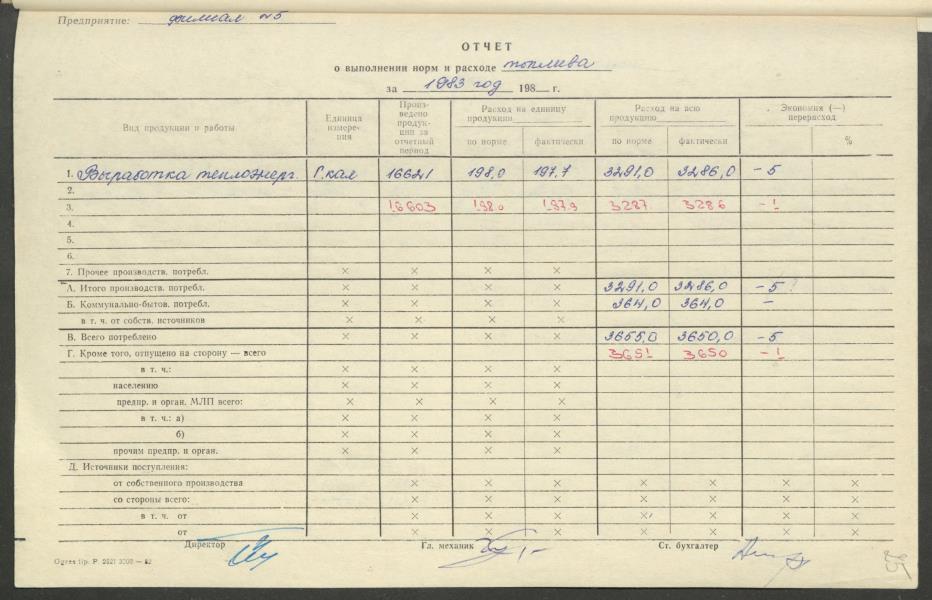 Предприятие: филиал №5
ОТЧЕТ
о выполнении норм и расходе топлива
за 1983 год 198 г.
Вид продукции и работы
Единица измере-ния
Произ-ведено продук-ции за отчетный период
Расход на единицу продукции
по норме фактически
Расход на всю продукцию
по норме фактически
Экономия (—) перерасход
%
1. Выработка теплоэнерг. Г.кал 16621 198,0 197,7 3291,0 3286,0 -5
2.
3. 16603 198.0 197.9 3287 3286 -1
4.
5.
6.
7. Прочее производств. потребл. × × × ×
А. Итого производств. потребл. × × × × 3291,0 3286,0 -5 ?
Б. Коммунально-бытов. потребл. × × × × 364,0 364,0 –
в т. ч. от собств. источников × × × ×
В. Всего потреблено × × × × 3655,0 3650,0 -5
Г. Кроме того, отпущено на сторону — всего 3651 3650 -1
в т. ч.: × × × ×
населению × × × ×
предпр. и орган. МЛП всего: × × × ×
в т. ч.: а) × × × ×
б) × × × ×
прочим предпр. и орган. × × × ×
Д. Источники поступления:
от собственного производства × × × × × × ×
со стороны всего: × × × × × × ×
в т. ч. от × × × × × × ×
от × × × × × × ×
Директор Гл. механик Ст. бухгалтер
Ogres tip. P. 2621 3000 — 82
25